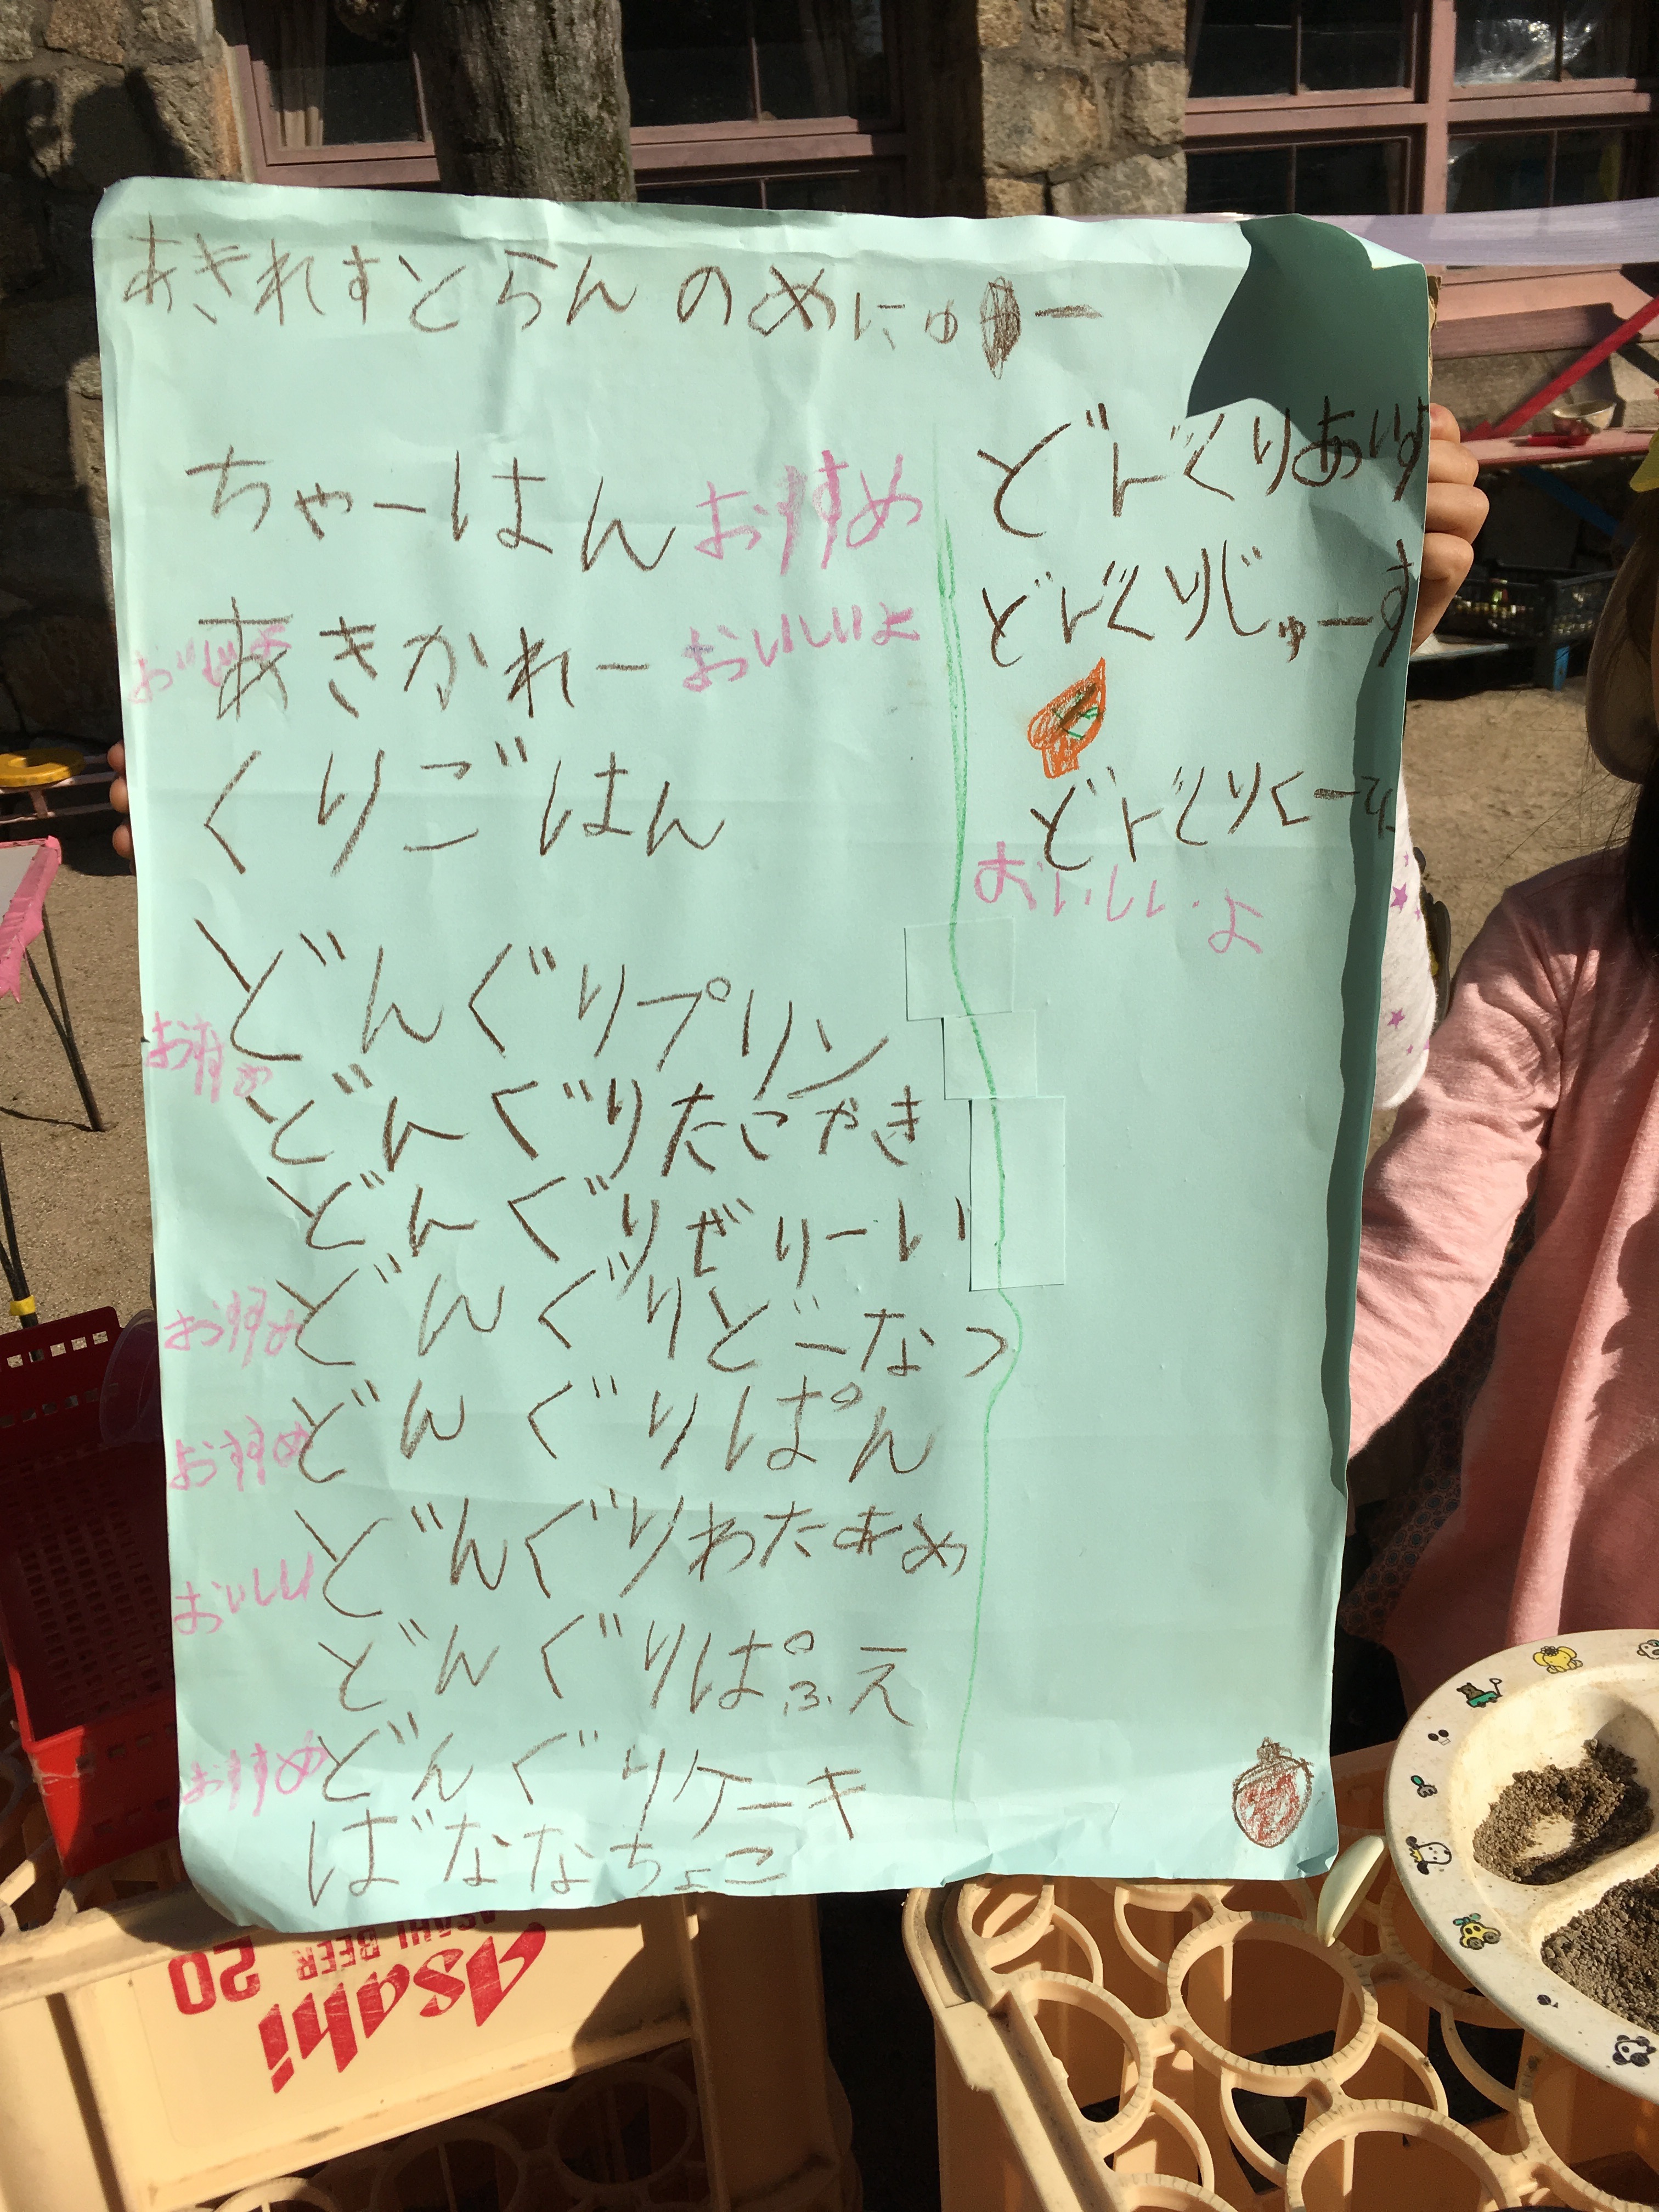 あきれすとらんのめにゅー
ちゃーはん おすすめ
あきかれー おいしいよ
くりごはん
どんぐりプリン
おすすめ
どんぐりたこやき
どんぐりぜりーい
おすすめ どんぐりどーなつ
おすすめ どんぐりぱん
どんぐりわたあめ
おいしい
どんぐりぱふえ
おすすめ どんぐりケーキ
ばななちょこ
どんぐりあいす
どんぐりじゅーす
おいしいよ
Asahi
ASAHI BEER 20